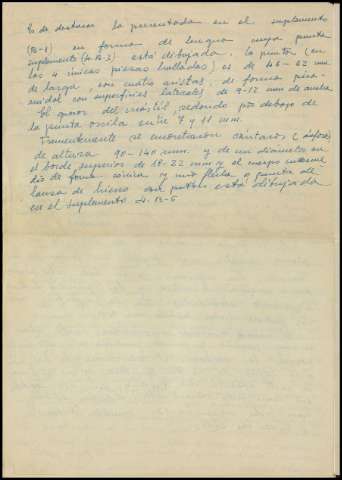 Es de destacar la presentada en el suplemento
en forma de lengua cuya punta
suplemento (4.12.3) está dibujada. la punta (en
las 4 únicas piezas halladas) es de 46-62 mm
de larga, con cuatro aristas, de forma pira-
midal con superficies laterales de 9-12 mm de ancho
El grosor del mástil redondo por debajo de
la punta oscila entre 7 y 11 mm.
Frecuentemente se encontraron cántaros
de altura 90-140 mm. y de un diámetro en
el borde superior de 18-22 mm y el cuerpo
de forma cónica y una flecha o punta de
lanza de hierro está dibujada
en el suplemento 4.12-5